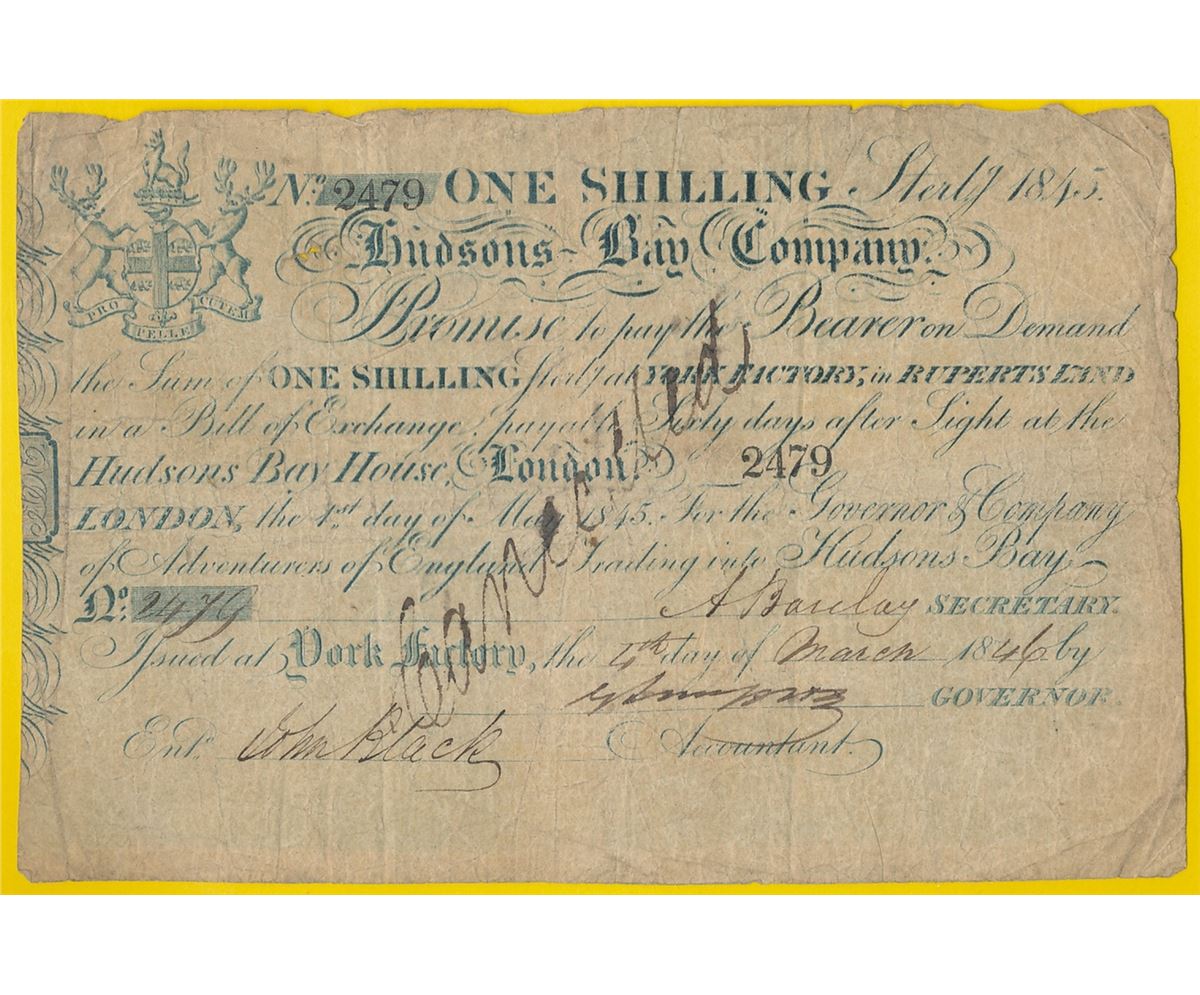 No. 2479 ONE SHILLING Sterlg 1845.
Hudsons-Bay Company.
PRO PELLE CUTEM
Promise to pay the Bearer on Demand
the Sum of ONE SHILLING Sterlg at YORK FACTORY, in RUPERTS LAND
in a Bill of Exchange, payable Sixty days after Sight at the
Hudsons Bay House, London. 2479
LONDON, the 1st day of May 1845. For the Governor & Company
of Adventurers of England Trading into Hudsons Bay
No. 2479 A Barclay SECRETARY.
Issued at York Factory, the 4th day of March 1846 by
GSimpson GOVERNOR.
Entd. John Black Accountant.
Cancelled